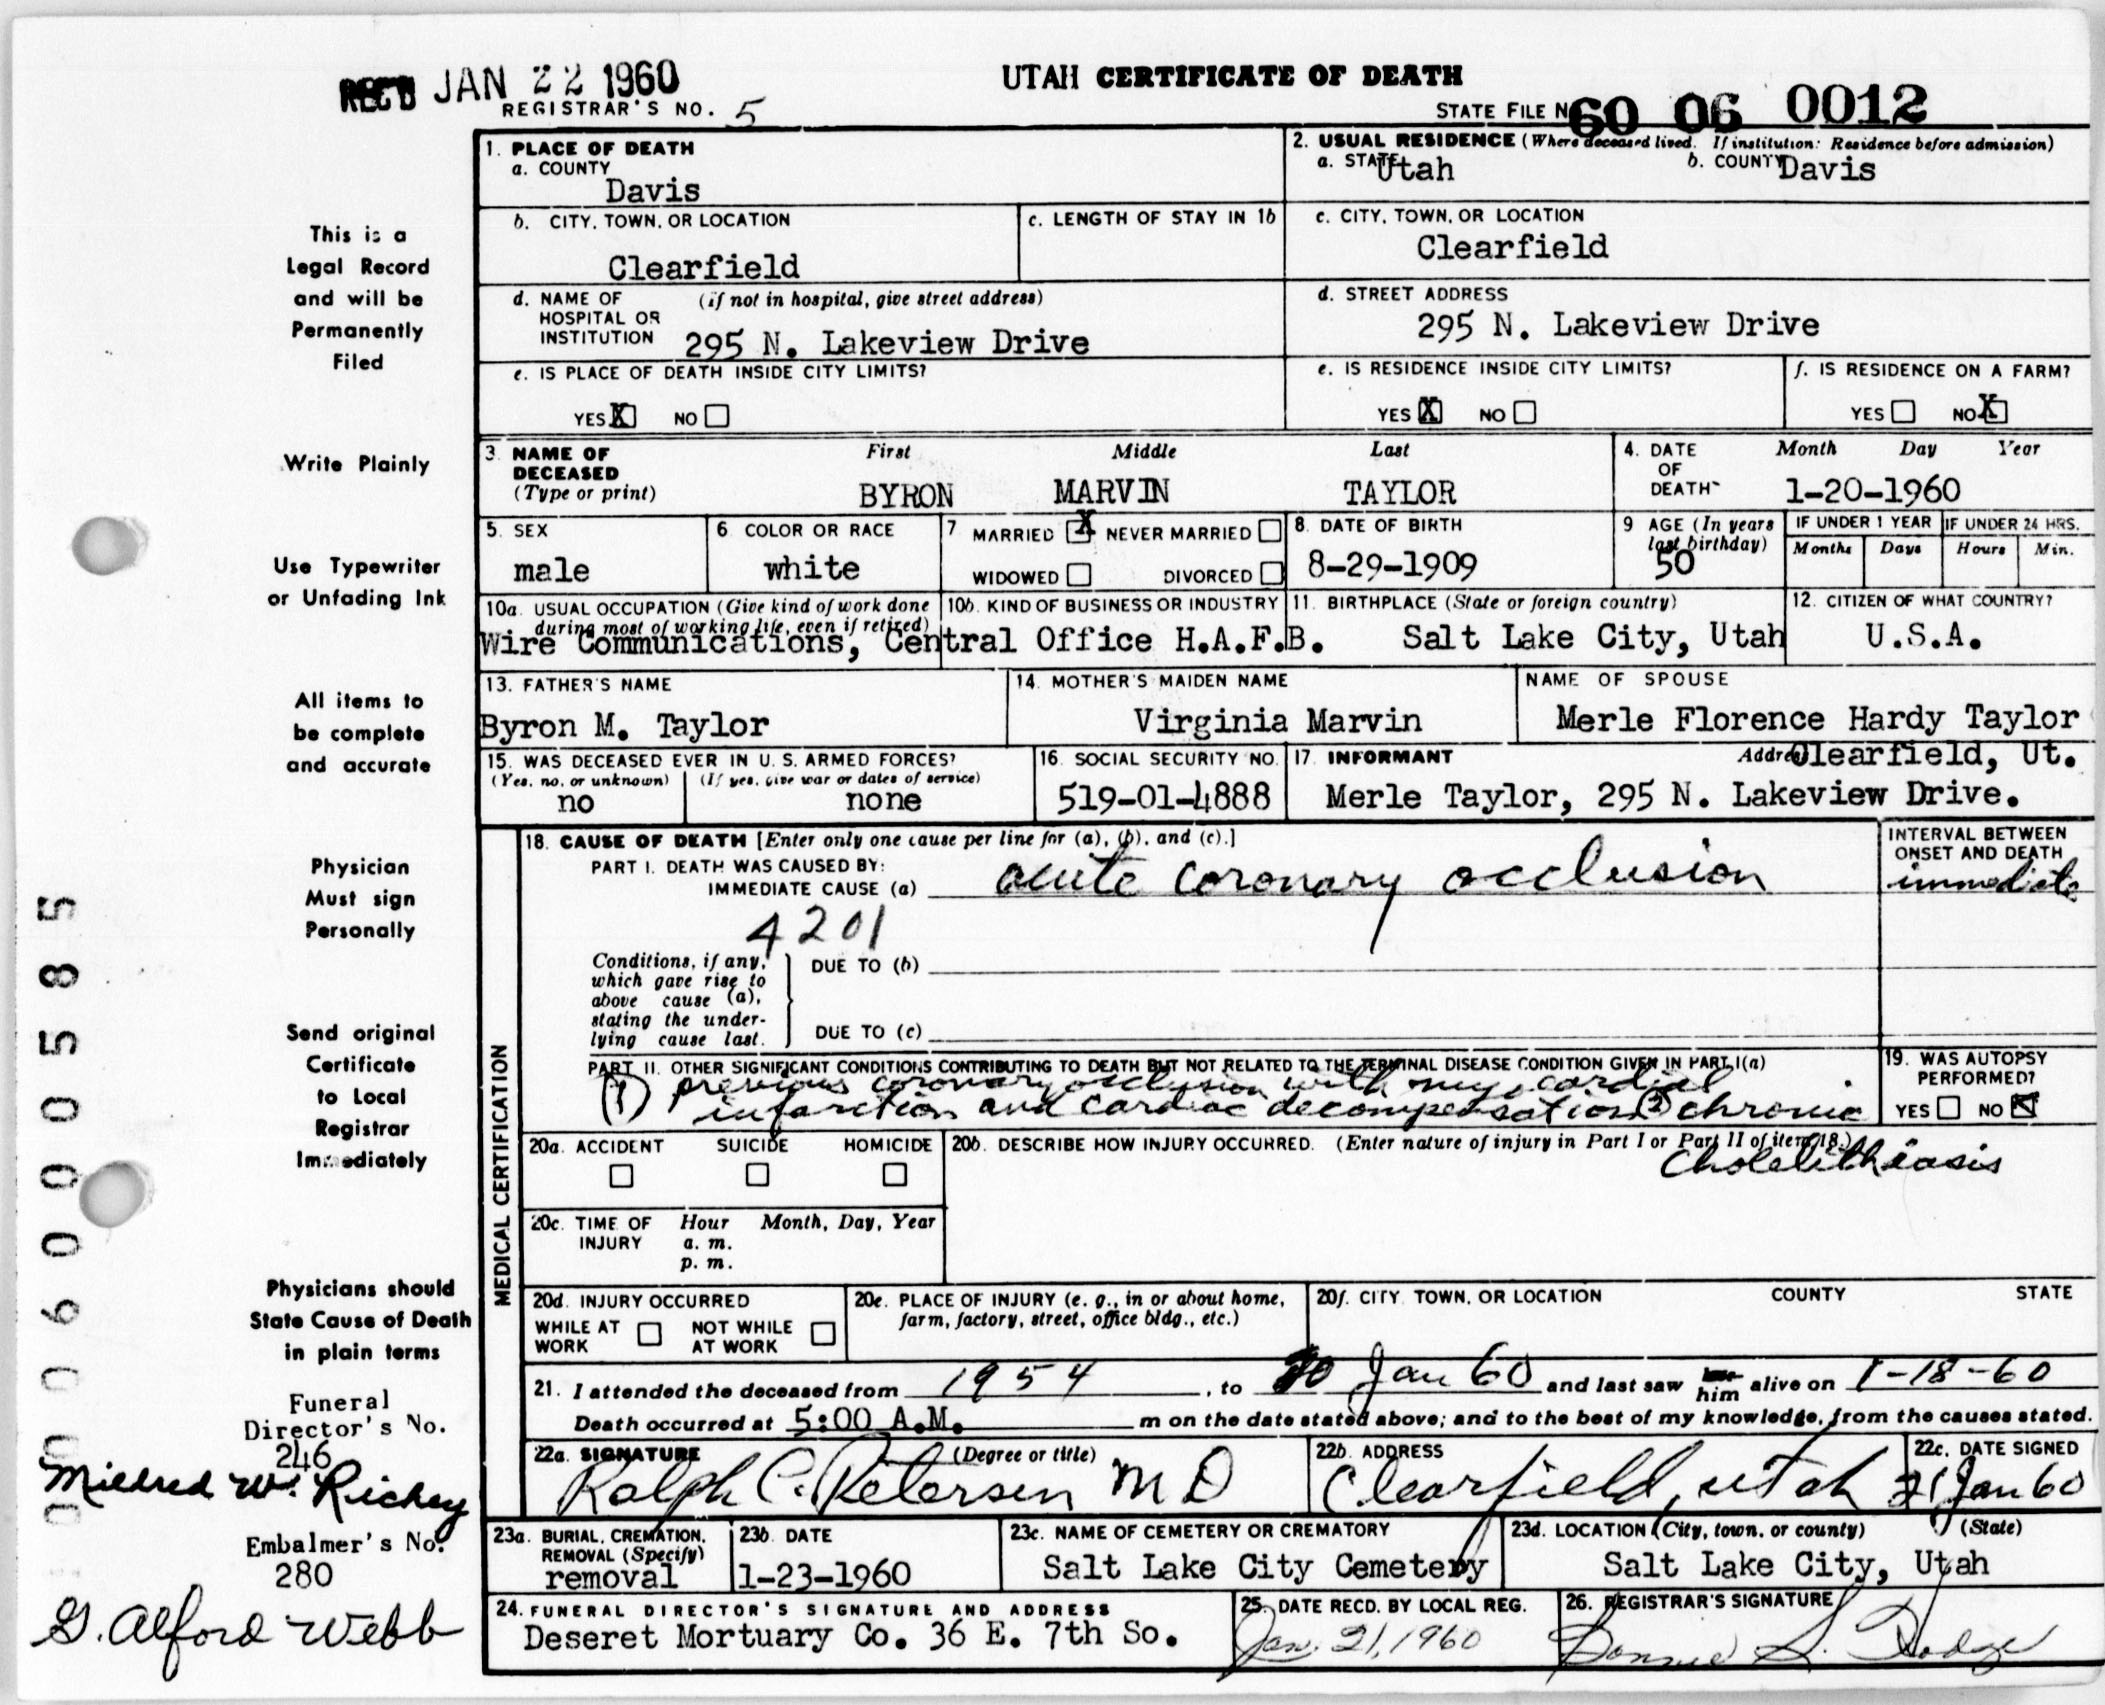 REC'D JAN 22 1960
UTAH CERTIFICATE OF DEATH
REGISTRAR'S NO. 5
STATE FILE N 60 06 0012
1. PLACE OF DEATH
a. COUNTY
Davis
2. USUAL RESIDENCE (Where deceased lived. If institution: Residence before admission)
a. STATE Utah b. COUNTY Davis
b. CITY, TOWN, OR LOCATION
Clearfield
c. LENGTH OF STAY IN 1b
c. CITY, TOWN, OR LOCATION
Clearfield
d. NAME OF HOSPITAL OR INSTITUTION (if not in hospital, give street address)
295 N. Lakeview Drive
d. STREET ADDRESS
295 N. Lakeview Drive
e. IS PLACE OF DEATH INSIDE CITY LIMITS?
YES X NO
e. IS RESIDENCE INSIDE CITY LIMITS?
YES X NO
f. IS RESIDENCE ON A FARM?
YES NO X
3. NAME OF DECEASED (Type or print)
First Middle Last
BYRON MARVIN TAYLOR
4. DATE OF DEATH Month Day Year
1-20-1960
5. SEX
male
6. COLOR OR RACE
white
7. MARRIED X NEVER MARRIED
WIDOWED DIVORCED
8. DATE OF BIRTH
8-29-1909
9 AGE (In years last birthday)
50
IF UNDER 1 YEAR
Months Days
IF UNDER 24 HRS.
Hours Min.
10a. USUAL OCCUPATION (Give kind of work done during most of working life, even if retired)
10b. KIND OF BUSINESS OR INDUSTRY
Wire Communications, Central Office H.A.F.B.
11. BIRTHPLACE (State or foreign country)
Salt Lake City, Utah
12. CITIZEN OF WHAT COUNTRY?
U.S.A.
13. FATHER'S NAME
Byron M. Taylor
14. MOTHER'S MAIDEN NAME
Virginia Marvin
NAME OF SPOUSE
Merle Florence Hardy Taylor
15. WAS DECEASED EVER IN U.S. ARMED FORCES?
(Yes, no, or unknown) (If yes, give war or dates of service)
no none
16. SOCIAL SECURITY NO.
519-01-4888
17. INFORMANT Address Clearfield, Ut.
Merle Taylor, 295 N. Lakeview Drive.
MEDICAL CERTIFICATION
18. CAUSE OF DEATH [Enter only one cause per line for (a), (b), and (c).]
PART I. DEATH WAS CAUSED BY:
IMMEDIATE CAUSE (a) acute coronary occlusion
INTERVAL BETWEEN ONSET AND DEATH
immediate
4201
Conditions, if any, which gave rise to above cause (a), stating the underlying cause last.
DUE TO (b)
DUE TO (c)
PART II. OTHER SIGNIFICANT CONDITIONS CONTRIBUTING TO DEATH BUT NOT RELATED TO THE TERMINAL DISEASE CONDITION GIVEN IN PART I(a)
(1) previous coronary occlusion with myocardial
infarction and cardiac decompensation (2) chronic
cholelithiasis
19. WAS AUTOPSY PERFORMED?
YES NO X
20a. ACCIDENT SUICIDE HOMICIDE
20b. DESCRIBE HOW INJURY OCCURRED. (Enter nature of injury in Part I or Part II of item 18.)
20c. TIME OF INJURY Hour Month, Day, Year
a. m.
p. m.
20d. INJURY OCCURRED
WHILE AT WORK NOT WHILE AT WORK
20e. PLACE OF INJURY (e. g., in or about home, farm, factory, street, office bldg., etc.)
20f. CITY, TOWN, OR LOCATION COUNTY STATE
21. I attended the deceased from 1954, to 20 Jan 60 and last saw him alive on 1-18-60
Death occurred at 5:00 A.M. m on the date stated above; and to the best of my knowledge, from the causes stated.
22a. SIGNATURE (Degree or title)
Ralph C. Petersen MD
22b. ADDRESS
Clearfield, utah
22c. DATE SIGNED
21 Jan 60
23a. BURIAL, CREMATION, REMOVAL (Specify)
removal
23b. DATE
1-23-1960
23c. NAME OF CEMETERY OR CREMATORY
Salt Lake City Cemetery
23d. LOCATION (City, town, or county) (State)
Salt Lake City, Utah
24. FUNERAL DIRECTOR'S SIGNATURE AND ADDRESS
Deseret Mortuary Co. 36 E. 7th So.
25. DATE RECD. BY LOCAL REG.
Jan. 21, 1960
26. REGISTRAR'S SIGNATURE
Bonnie S. Hodge
This is a
Legal Record
and will be
Permanently
Filed
Write Plainly
Use Typewriter
or Unfading Ink
All items to
be complete
and accurate
Physician
Must sign
Personally
Send original
Certificate
to Local
Registrar
Immediately
Physicians should
State Cause of Death
in plain terms
Funeral
Director's No.
246
Mildred W. Richey
Embalmer's No.
280
G. Alford Webb